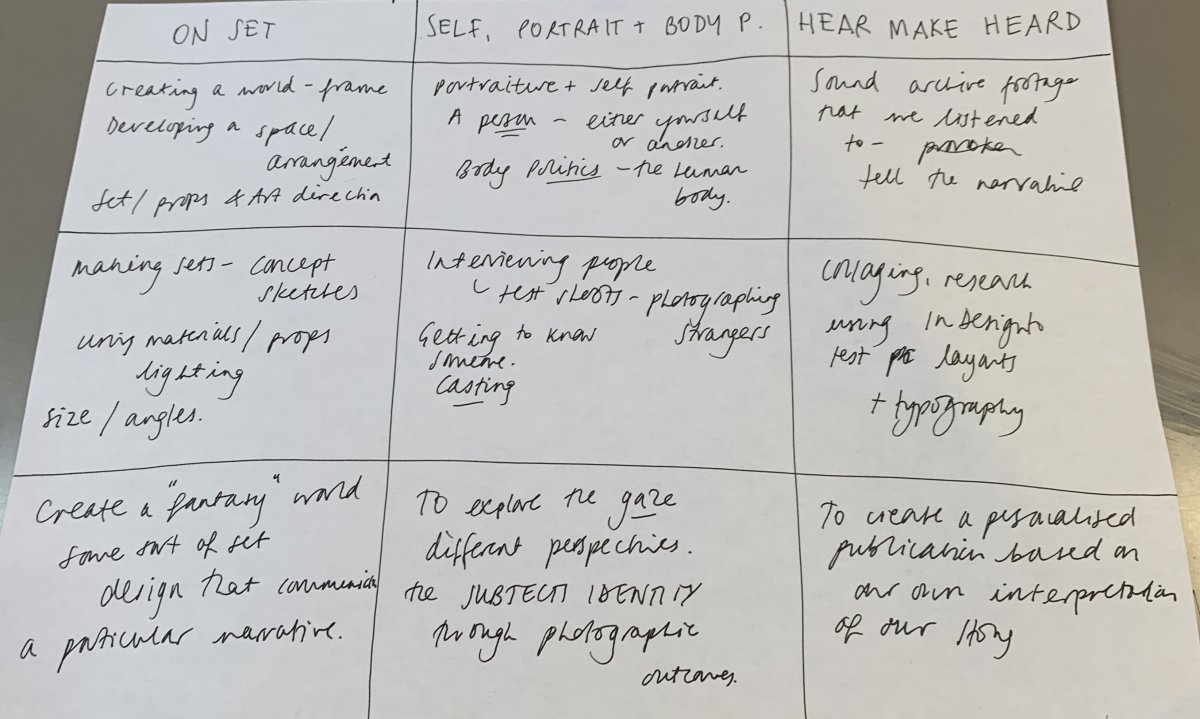 ON SET
creating a world - frame
Developing a space/
arrangement
Set/props & Art direction
making sets - concept
sketches
using materials/props
lighting
size/angles.
Create a "fantasy" world
some sort of set
design that communicate
a particular narrative.
SELF, PORTRAIT + BODY P.
portraiture + self portrait.
A person - either yourself
or another.
Body Politics - the human
body.
Interviewing people
test shoots - photographing
strangers
Getting to know
someone.
casting
To explore the gaze
different perspectives.
the SUBJECTS IDENTITY
through photographic
outcomes.
HEAR MAKE HEARD
Sound archive footage
that we listened
to -
tell the narrative
collaging, research
using InDesign to
test layouts
+ typography
To create a personalised
publication based on
our own interpretation
of our story